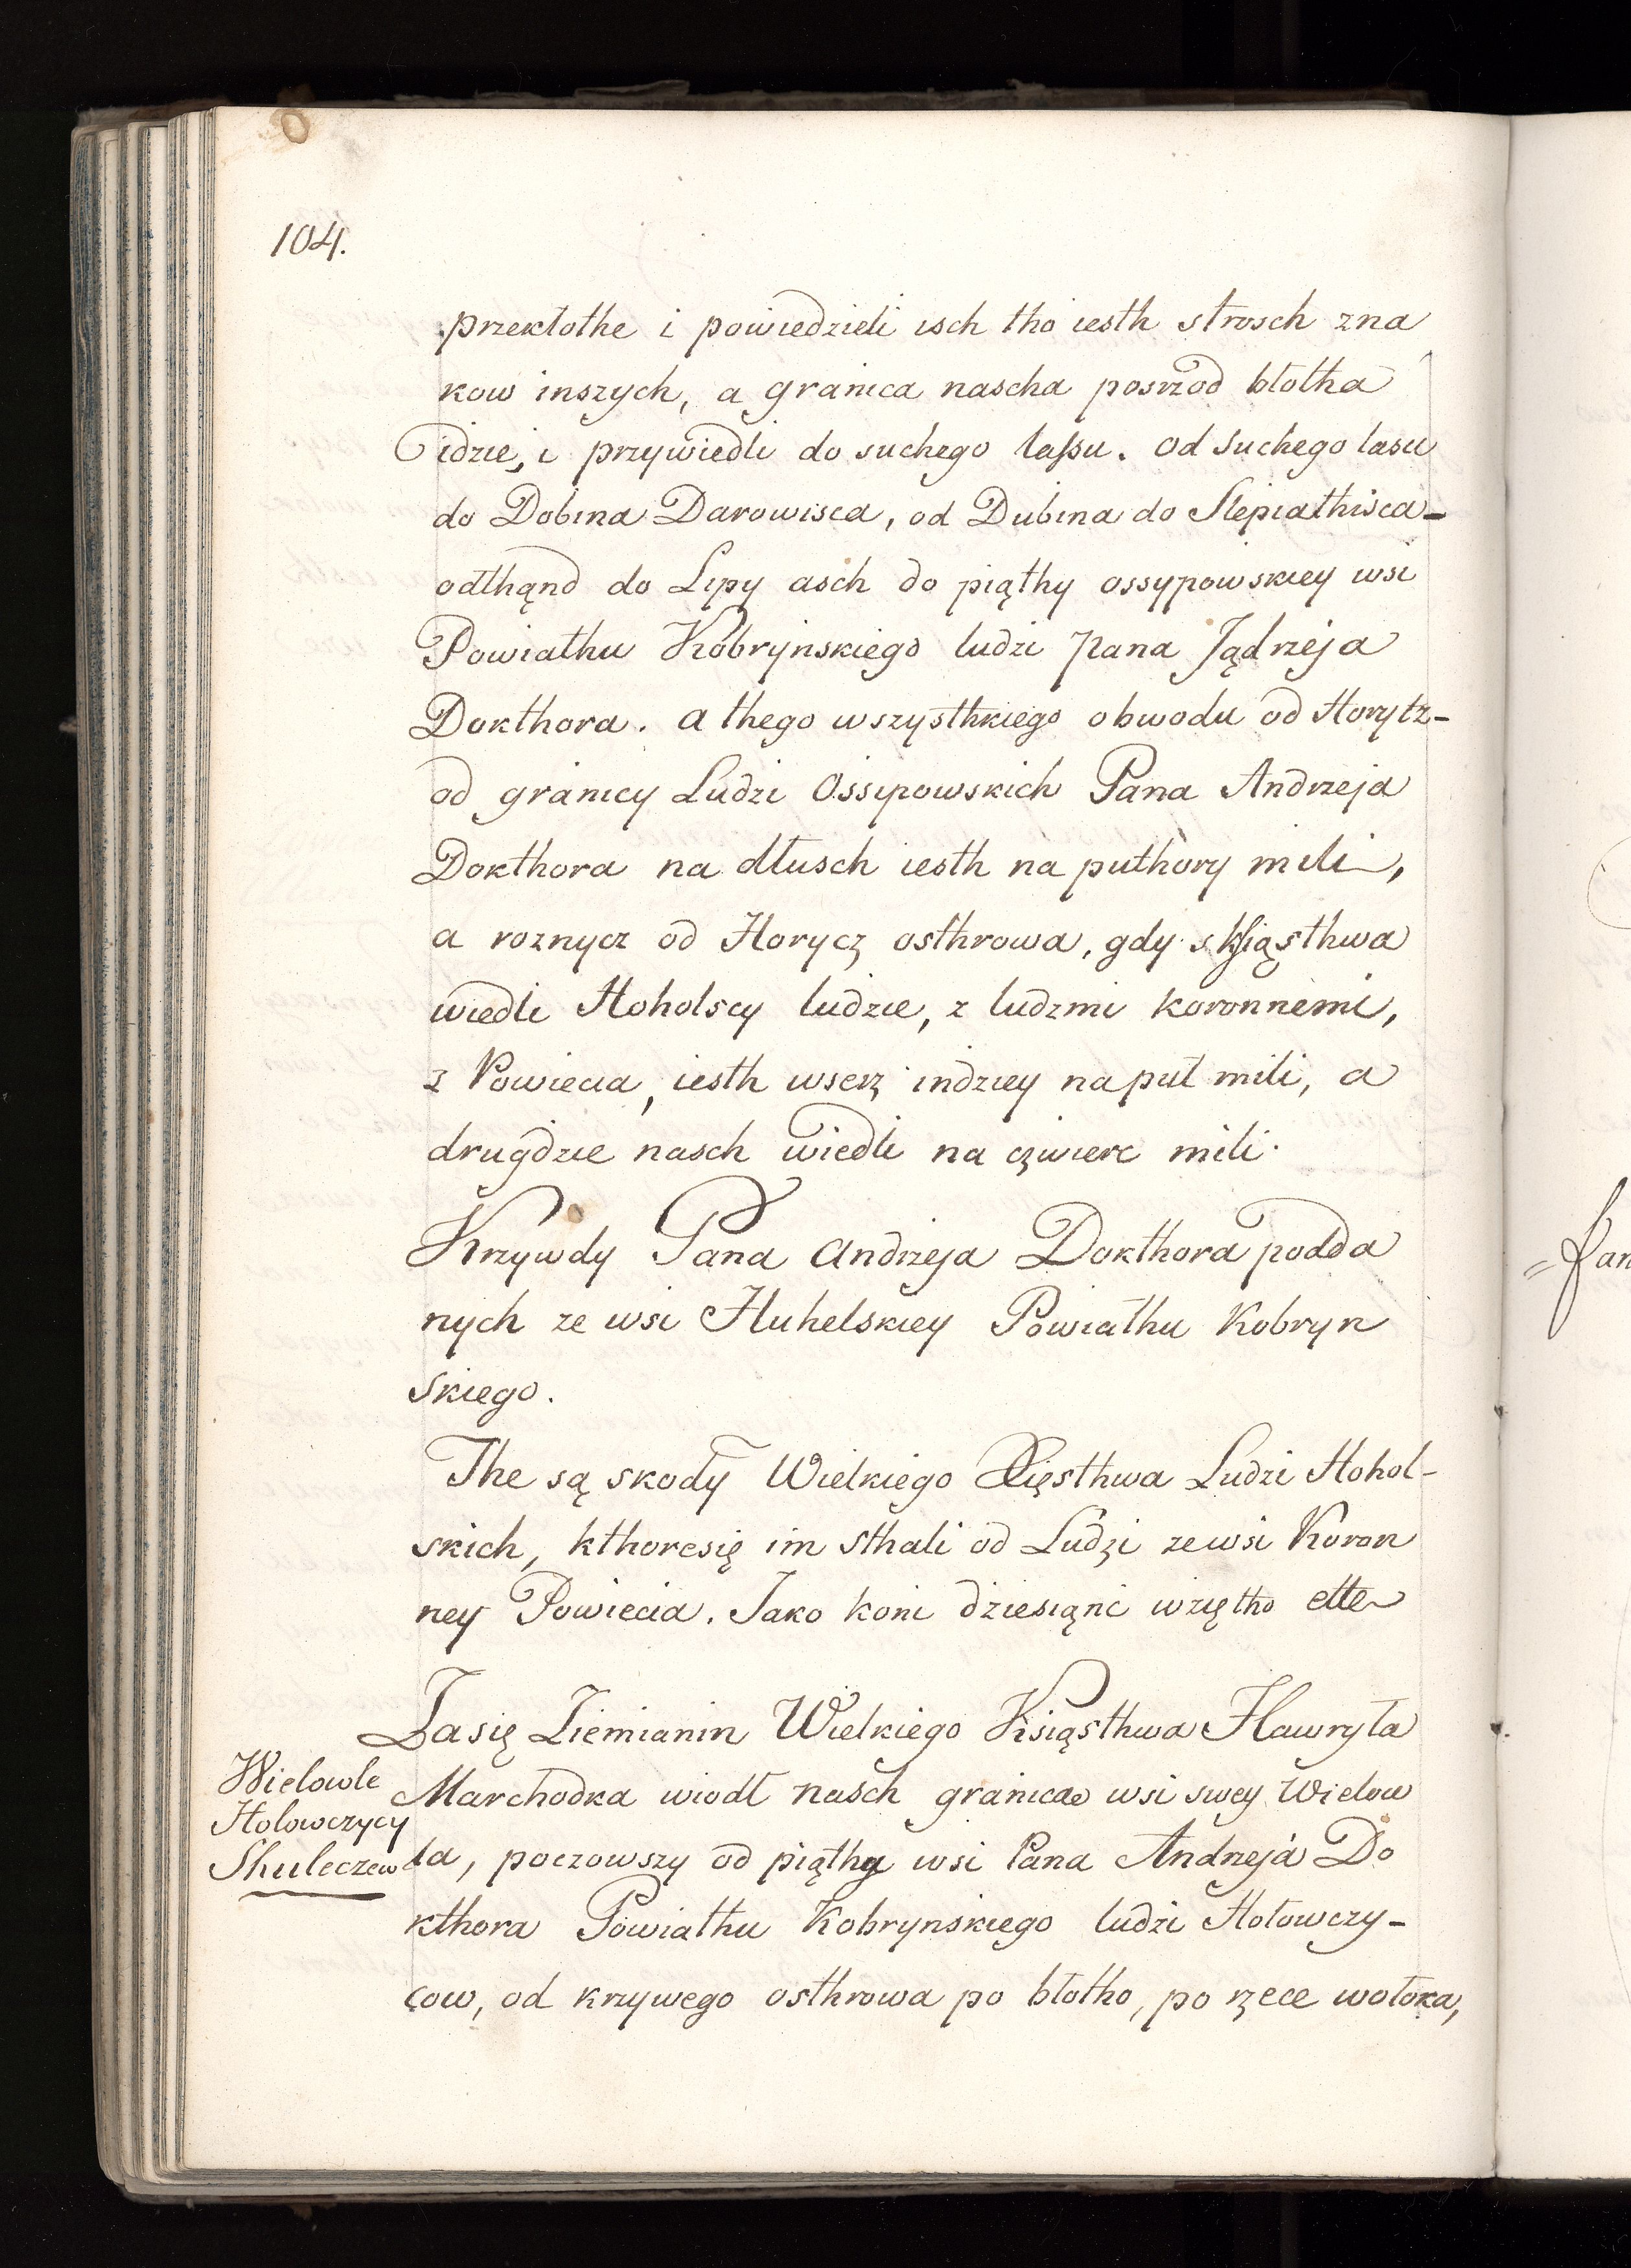 104.
przekłothe i powiedzieli isch tho iesth strosch zna
kow inszych, a granica nascha posrzod błotha
idzie, i przywiedli do suchego lassu. od suchego lasu
do Dobina Darowisca, od Dubina do Slepiathisca-
odthąnd do Lipy asch do piąthy ossypowskiey wsi
Powiathu Kobrynskiego ludzi Pana Jądrzeja
Dokthora. a thego wszysthkiego obwodu od Horytz-
od granicy Ludzi Ossipowskich Pana Andrzeja
Dokthora na dłusch iesth na puthory mili,
a roznycz od Horycz osthrowa, gdy s Ksiąsthwa
wiedli Hoholscy ludzie, z ludzmi koronnemi,
z Powiecia, iesth wserz indziey na puł mili, a
drugdzie nasch wiedli na czwierc mili.
Krzywdy Pana Andrzeja Dokthora podda
nych ze wsi Huhelskiey Powiathu Kobryn
skiego.
The są skody Wielkiego Xięsthwa Ludzi Hohol-
skich, kthoresię im sthali od Ludzi zewsi Koron
ney Powiecia. Jako koni dziesiąnć wziętho ette
Zasię Ziemianin Wielkiego Ksiąsthwa Hawryła
Wielowle
Holowczycy
Skuleczew
Marchodka wiodł nasch granicae wsi swey Wielow
la, poczowszy od piąthy wsi Pana Andrzeja Do
kthora Powiathu Kobrynskiego ludzi Hołowczy-
cow, od krzywego osthrowa po błotho, po rzece wołoka,